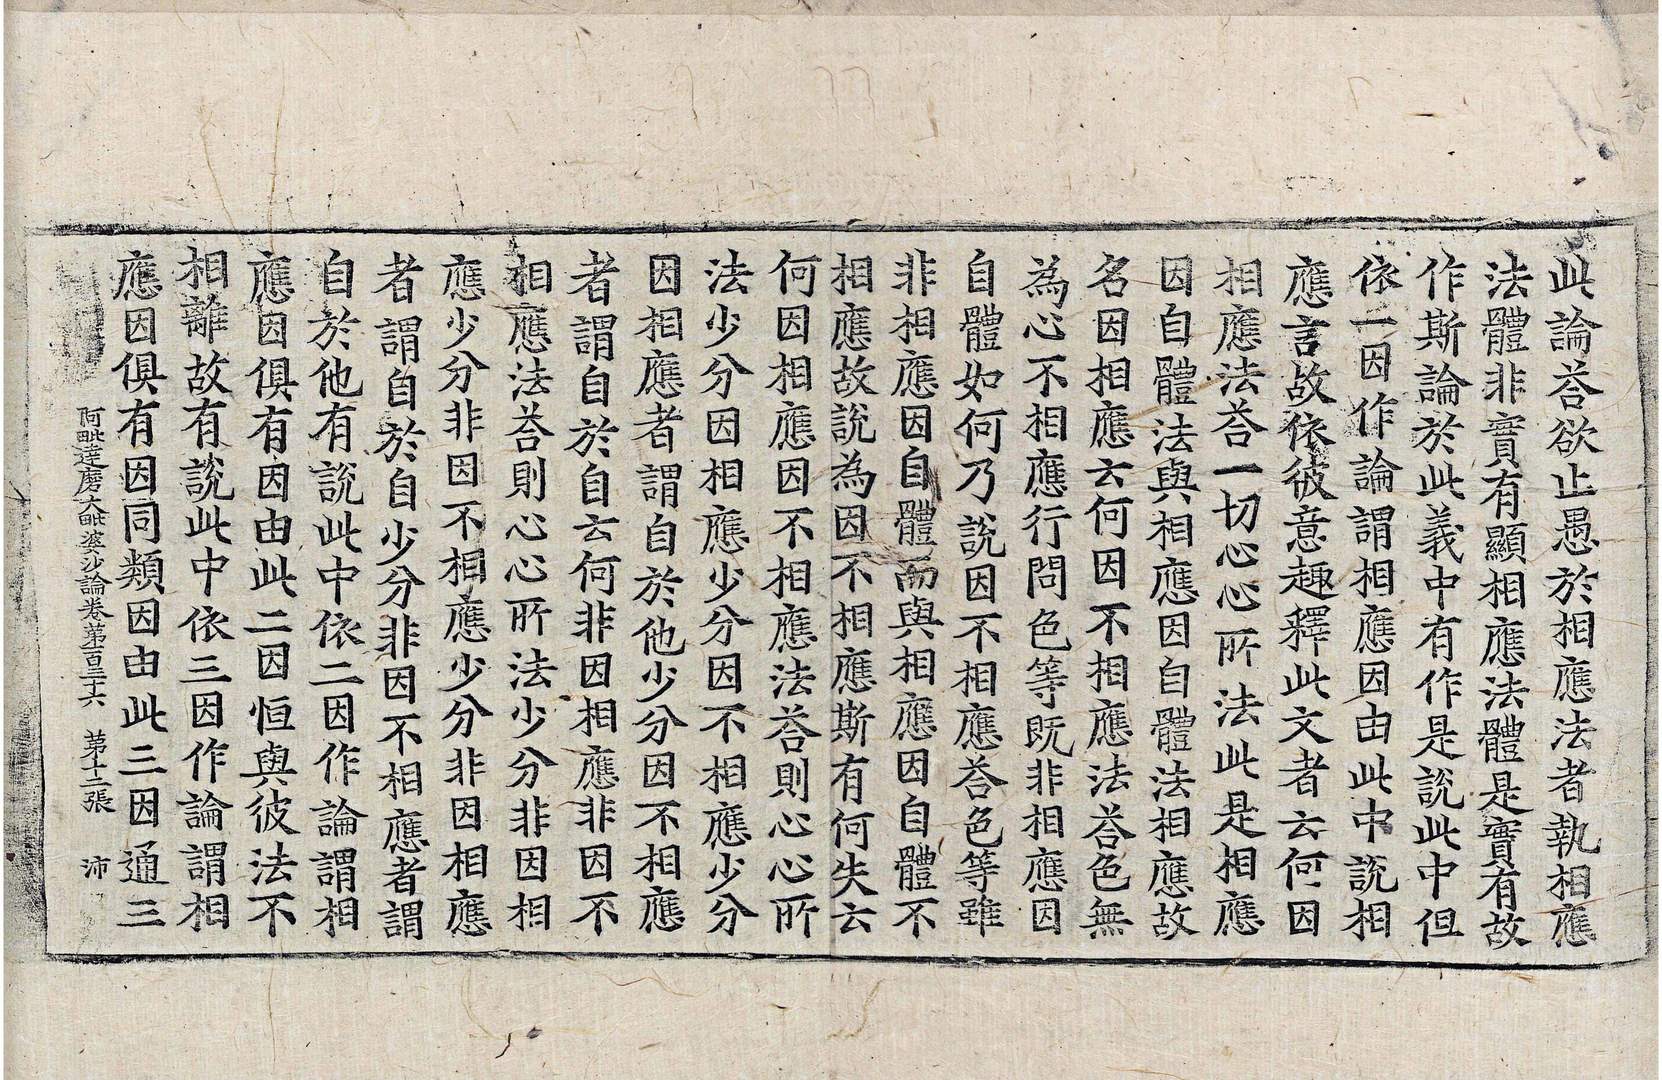 此論荅欲止愚於相應法者執相應
法體非實有顯相應法體是實有故
作斯論於此義中有作是說此中但
依一因作論謂相應因由此中說相
應言故依彼意趣釋此文者云何因
相應法荅一切心心所法此是相應
因自體法與相應因自體法相應故
名因相應云何因不相應法荅色無
為心不相應行問色等既非相應因
自體如何乃說因不相應荅色等雖
非相應因自體而與相應因自體不
相應故說為因不相應斯有何失云
何因相應因不相應法荅則心心所
法少分因相應少分因不相應少分
因相應者謂自於他少分因不相應
者謂自於自云何非因相應非因不
相應法荅則心心所法少分非因相
應少分非因不相應少分非因相應
者謂自於自少分非因不相應者謂
自於他有說此中依二因作論謂相
應因俱有因由此二因恒與彼法不
相離故有說此中依三因作論謂相
應因俱有因同類因由此三因通三
阿毗達磨大毗婆沙論卷苐一百三十六 苐十二張 沛